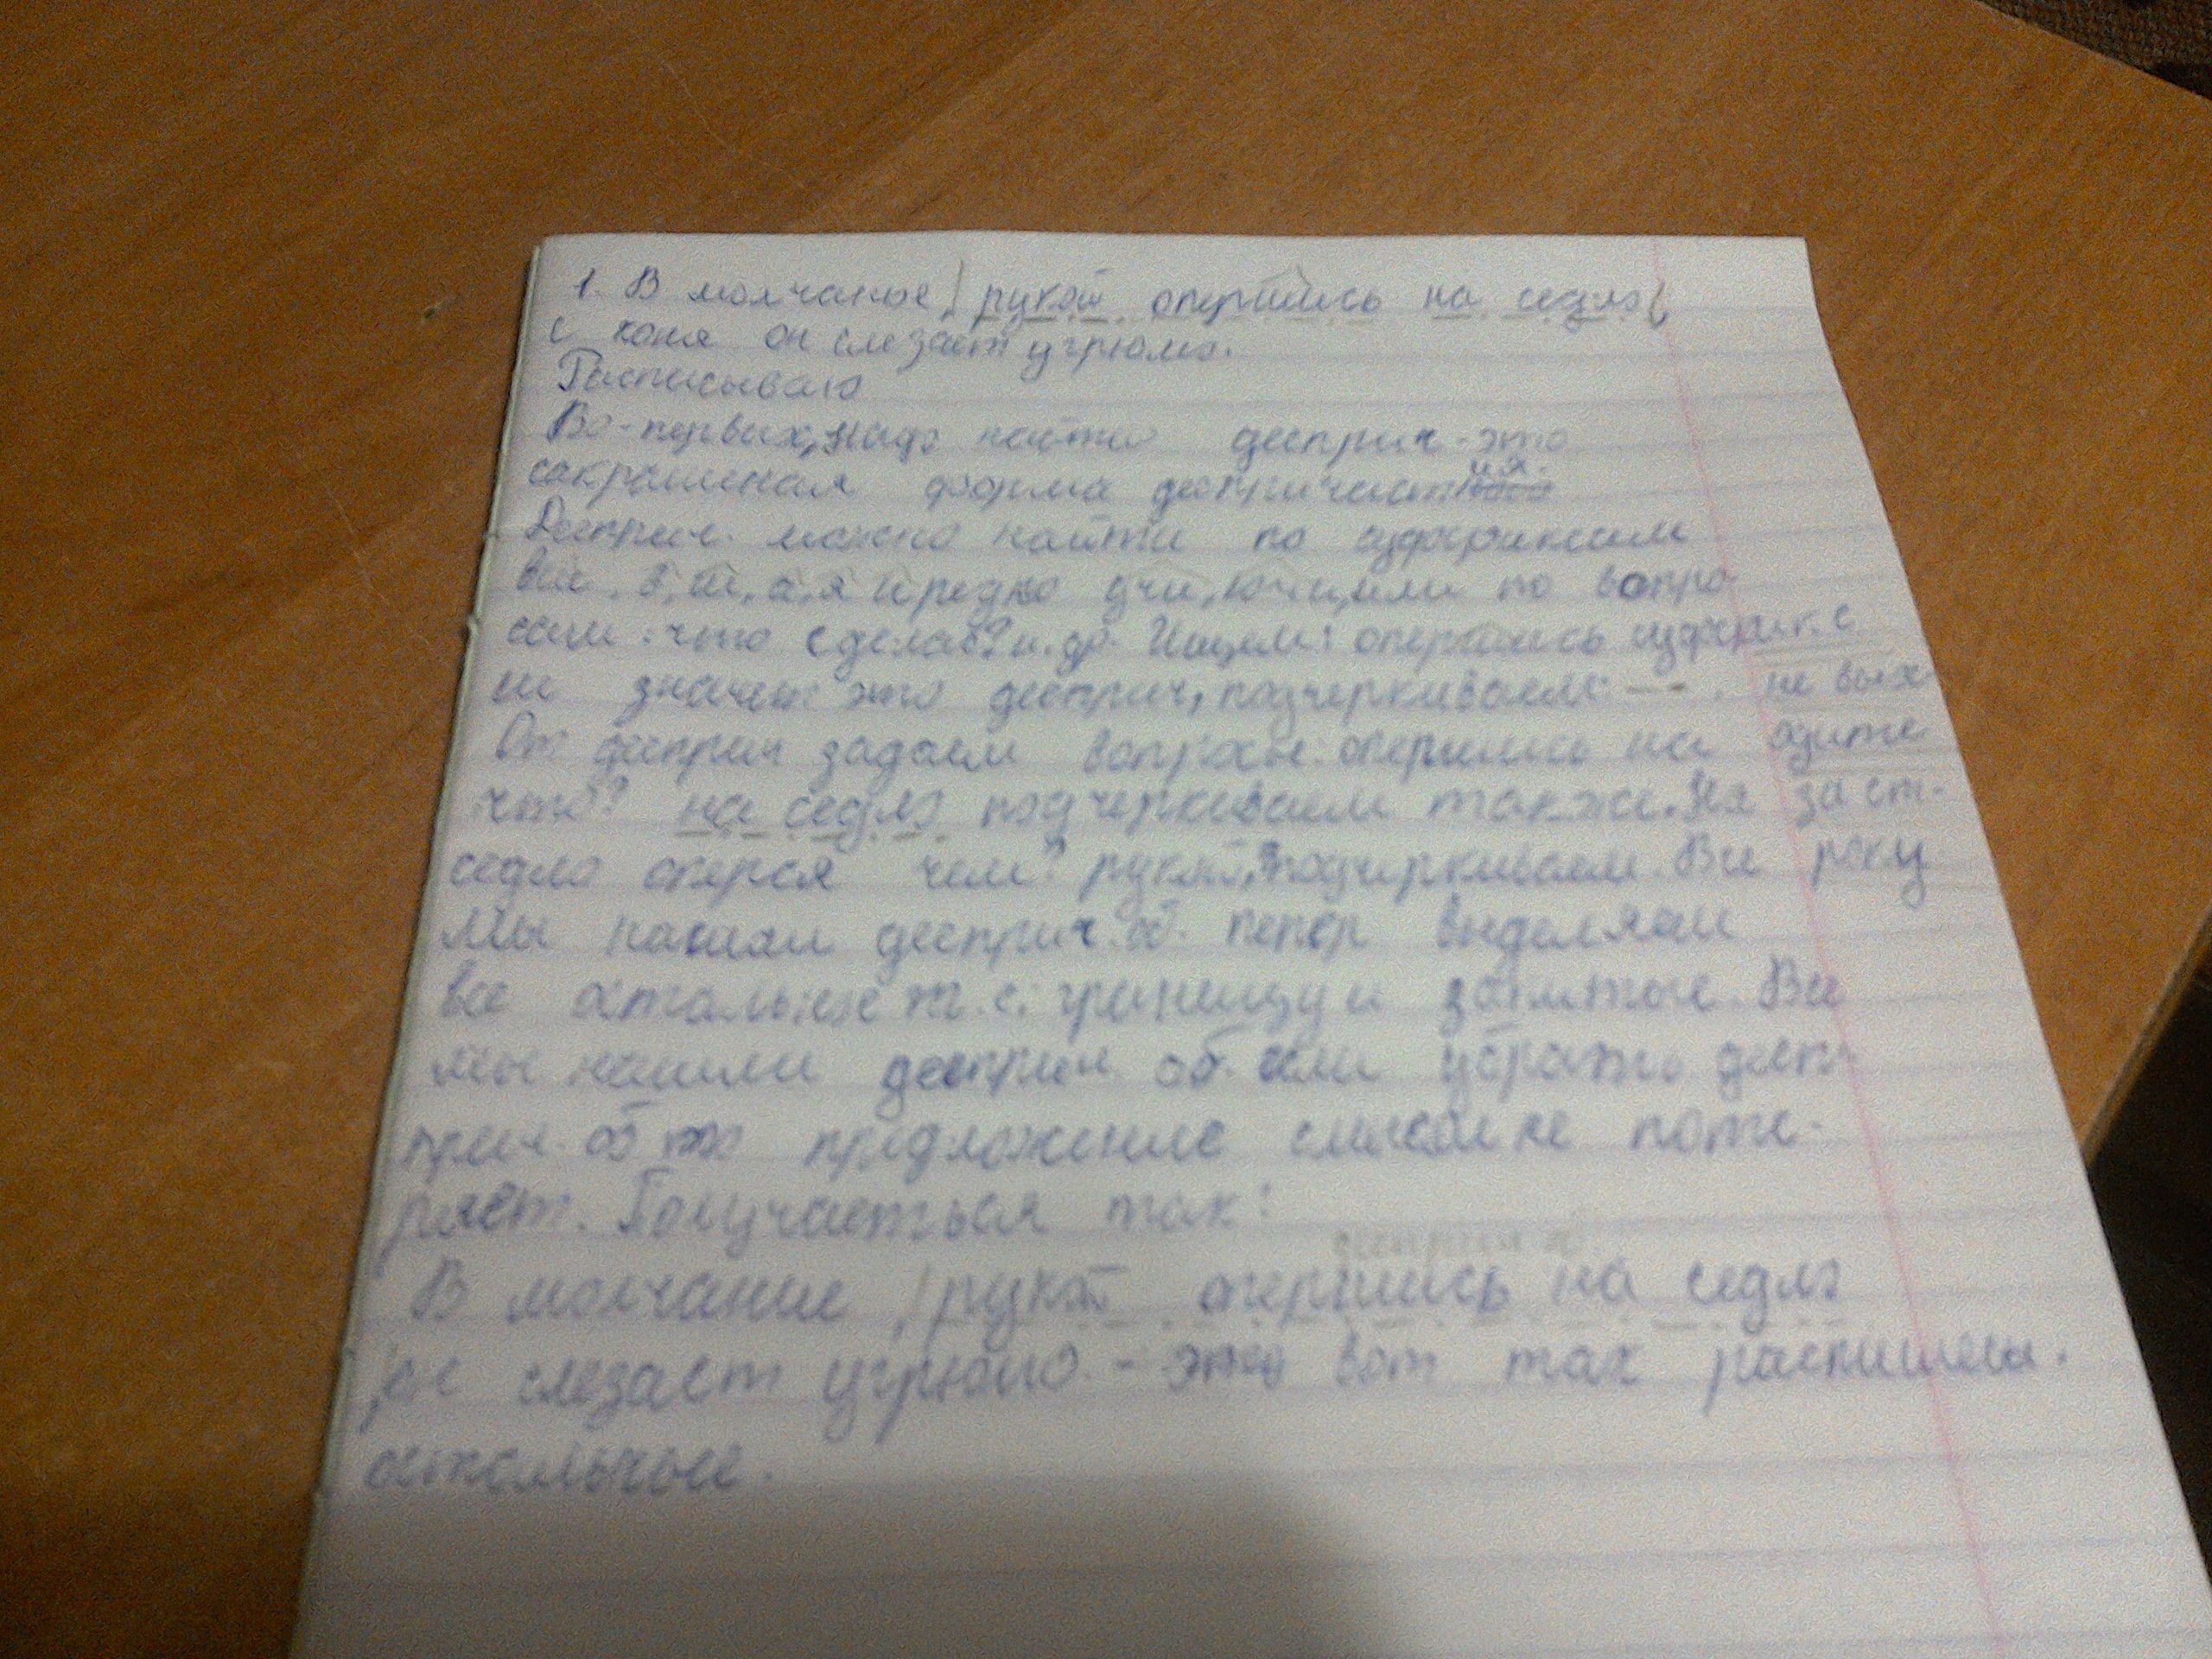 1. В молчанье, | рукой опершись на седло,
с коня он слезает угрюмо.
Расписываю
Во-первых, надо найти дееприч - это
сокрашеная форма деепричастия.
Дееприч. можно найти по суффиксам
вши, в, ш, а, я и редко учи, ючи, или по вопро
сам: что сделав? и др. Ищем: опершись суффикс. с
ш значет это дееприч, подчеркиваем -.-.
От дееприч задаем вопросы: опершись на
что? на седло подчеркиваем также. На
седло оперся чем? рукой, подчеркиваем. Вы
не вых
одите
за ст-
року
Мы нашли дееприч. об. тепер выделяем
все остальное т.е. границу и запятые. Вы
мы нашли дееприч об. если убрать дееп
рич. об то предложение смысл не поте-
ряет. Получаеться так:
В молчание, | рукой опершись на седло
, он слезает угрюмо. - это вот так распишем.
остальное.